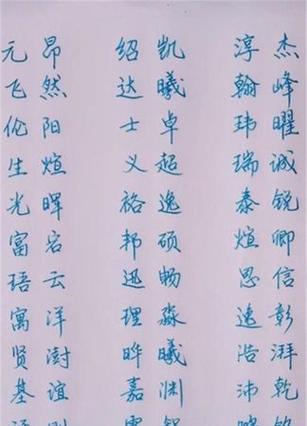 元昂 绍凯 淳杰
飞然 达曦 翰峰
伦阳 士卓 玮曜
生煊 义超 瑞诚
光晖 裕逸 泰锐
富容 邦硕 煊卿
珸云 迅畅 思信
寓洋 理淼 逸彰
贤澍 晔曦 浩湃
基谊 嘉渊 沛乾